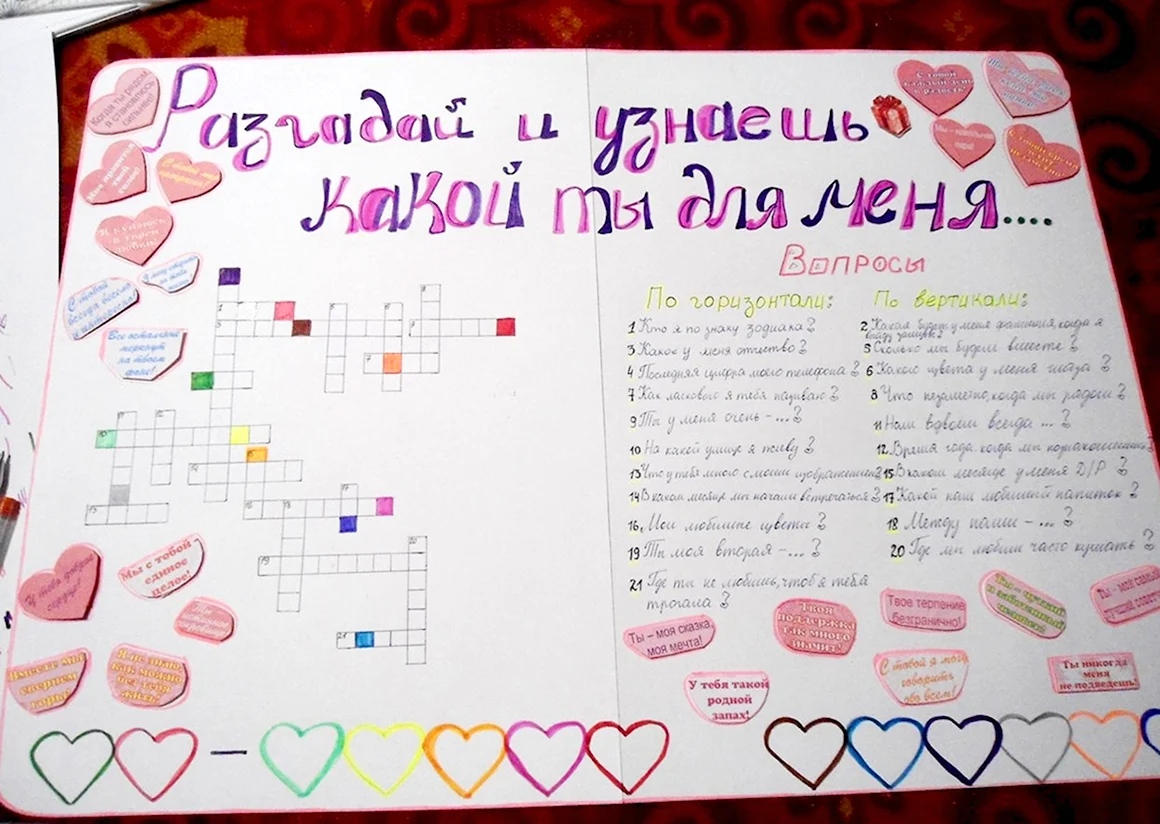 Разгадай и узнаешь
какой ты для меня....
Когда ты рядом,
я становлюсь
сильнее!
С тобой
каждый день
в радость!
Мне нравится
твой
голос!
Вопросы
По горизонтали:
1 Кто я по знаку зодиака?
3 Какое у меня отчество?
4 Последняя цифра моего телефона?
7 Как ласкового я тебя называю?
9 Ты у меня очень - ...?
10 На какой улице я живу?
13 Что у тебя много с моим изображением?
14 В каком месяце мы начали встречаться?
16, Мои любимые цветы?
19 Ты моя вторая - ...?
21 Где ты не любишь, чтоб я тебя
трогала?
По вертикали:
2 Какая будет у меня фамилия, когда я
выйду замуж?
5 Сколько мы будем вместе?
6 Какого цвета у меня глаза?
8 Что незаметно, когда мы рядом?
11 Нам вдвоём всегда ...?
12 Время года, когда мы познакомились?
15 В каком месяце у меня Д/Р?
17 Какой наш любимый напиток?
18 Между нами - ...?
20 Где мы любим часто кушать?
С тобой
всегда весело
и интересно!
Все остальное
меркнут
на твоем
фоне!
У тебя доброе
сердце!
Мы с тобой
единое
целое!
Вместе мы
свернем
горы!
Я не знаю,
как можно
без тебя
жить!
Ты – моя сказка,
моя мечта!
Твоя
поддержка
так много
значит!
Твое терпение
безгранично!
Ты – чуткий
и заботливый
человек!
У тебя такой
родной
запах!
С тобой я могу
говорить
обо всем!
Ты никогда
меня
не подведешь!